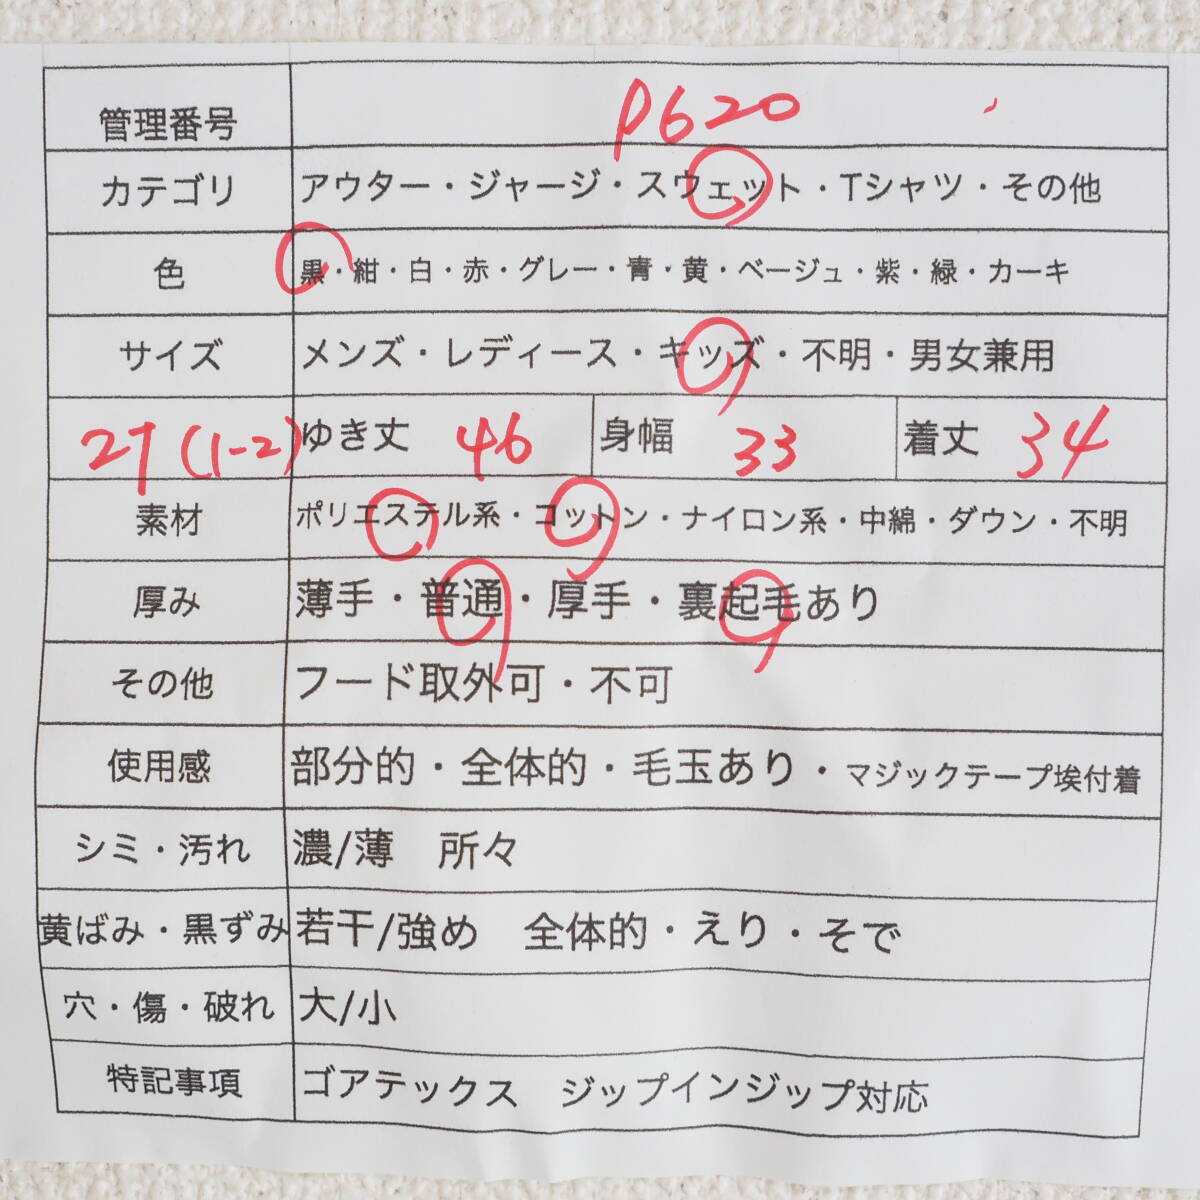 管理番号 P620
カテゴリ アウター・ジャージ・スウェット・Tシャツ・その他
色 黒・紺・白・赤・グレー・青・黄・ベージュ・紫・緑・カーキ
サイズ メンズ・レディース・キッズ・不明・男女兼用
2T (1-2) ゆき丈 46 身幅 33 着丈 34
素材 ポリエステル系・コットン・ナイロン系・中綿・ダウン・不明
厚み 薄手・普通・厚手・裏起毛あり
その他 フード取外可・不可
使用感 部分的・全体的・毛玉あり・マジックテープ埃付着
シミ・汚れ 濃/薄 所々
黄ばみ・黒ずみ 若干/強め 全体的・えり・そで
穴・傷・破れ 大/小
特記事項 ゴアテックス ジップインジップ対応